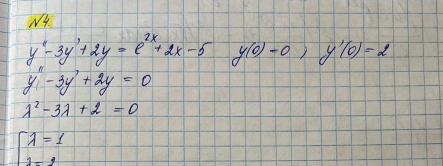 №4.
y'' - 3y' + 2y = e^{2x} + 2x - 5   y(0) = 0 ; y'(0) = 2
y'' - 3y' + 2y = 0
λ² - 3λ + 2 = 0
[ λ = 1
λ = 2